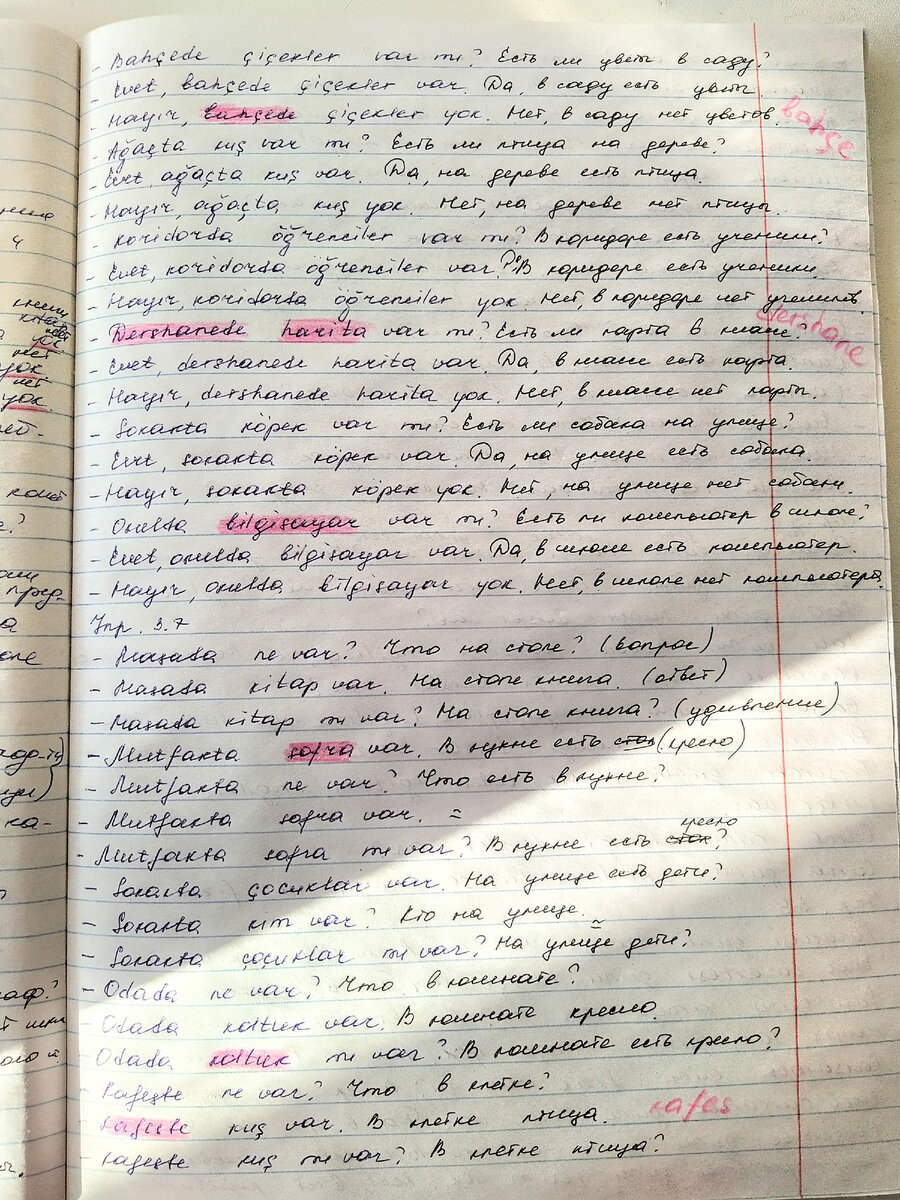 - Bahçede çiçekler var mı? Есть ли цветы в саду?
- Evet, bahçede çiçekler var. Да, в саду есть цветы
- Hayır, bahçede çiçekler yok. Нет, в саду нет цветов.
bahçe
- Ağaçta kuş var mı? Есть ли птица на дереве?
- Evet, ağaçta kuş var. Да, на дереве есть птица.
- Hayır, ağaçta kuş yok. Нет, на дереве нет птицы.
- Koridorda öğrenciler var mı? В коридоре есть ученики?
- Evet, koridorda öğrenciler var. В коридоре есть ученики.
- Hayır, koridorda öğrenciler yok Нет, в коридоре нет учеников
- Dershanede harita var mı? Есть ли карта в классе?
dershane
- Evet, dershanede harita var. Да, в классе есть карта.
- Hayır, dershanede harita yok. Нет, в классе нет карты.
- Sokakta köpek var mı? Есть ли собака на улице?
- Evet, sokakta köpek var. Да, на улице есть собака.
- Hayır, sokakta köpek yok. Нет, на улице нет собаки.
- Okulda bilgisayar var mı? Есть ли компьютер в школе?
- Evet, okulda bilgisayar var. Да, в школе есть компьютер.
- Hayır, okulda bilgisayar yok. Нет, в школе нет компьютера.
Упр. 3.7
- Masada ne var? Что на столе? (вопрос)
- Masada kitap var. На столе книга. (ответ)
- Masada kitap mı var? На столе книга? (удивление)
- Mutfakta sofra var. В кухне есть стол (кресло)
- Mutfakta ne var? Что есть в кухне?
- Mutfakta sofra var. =
кресло
- Mutfakta sofra mı var? В кухне есть стол?
- Sokakta çocuklar var. На улице есть дети?
- Sokakta kim var? Кто на улице.
- Sokakta çoçuklar mı var? На улице дети?
- Odada ne var? Что в комнате?
- Odada koltuk var. В комнате кресло.
- Odada koltuk mı var? В комнате есть кресло?
- Kafeste ne var? Что в клетке?
- Kafeste kuş var. В клетке птица.
kafes
- Kafeste kuş mı var? В клетке птица?